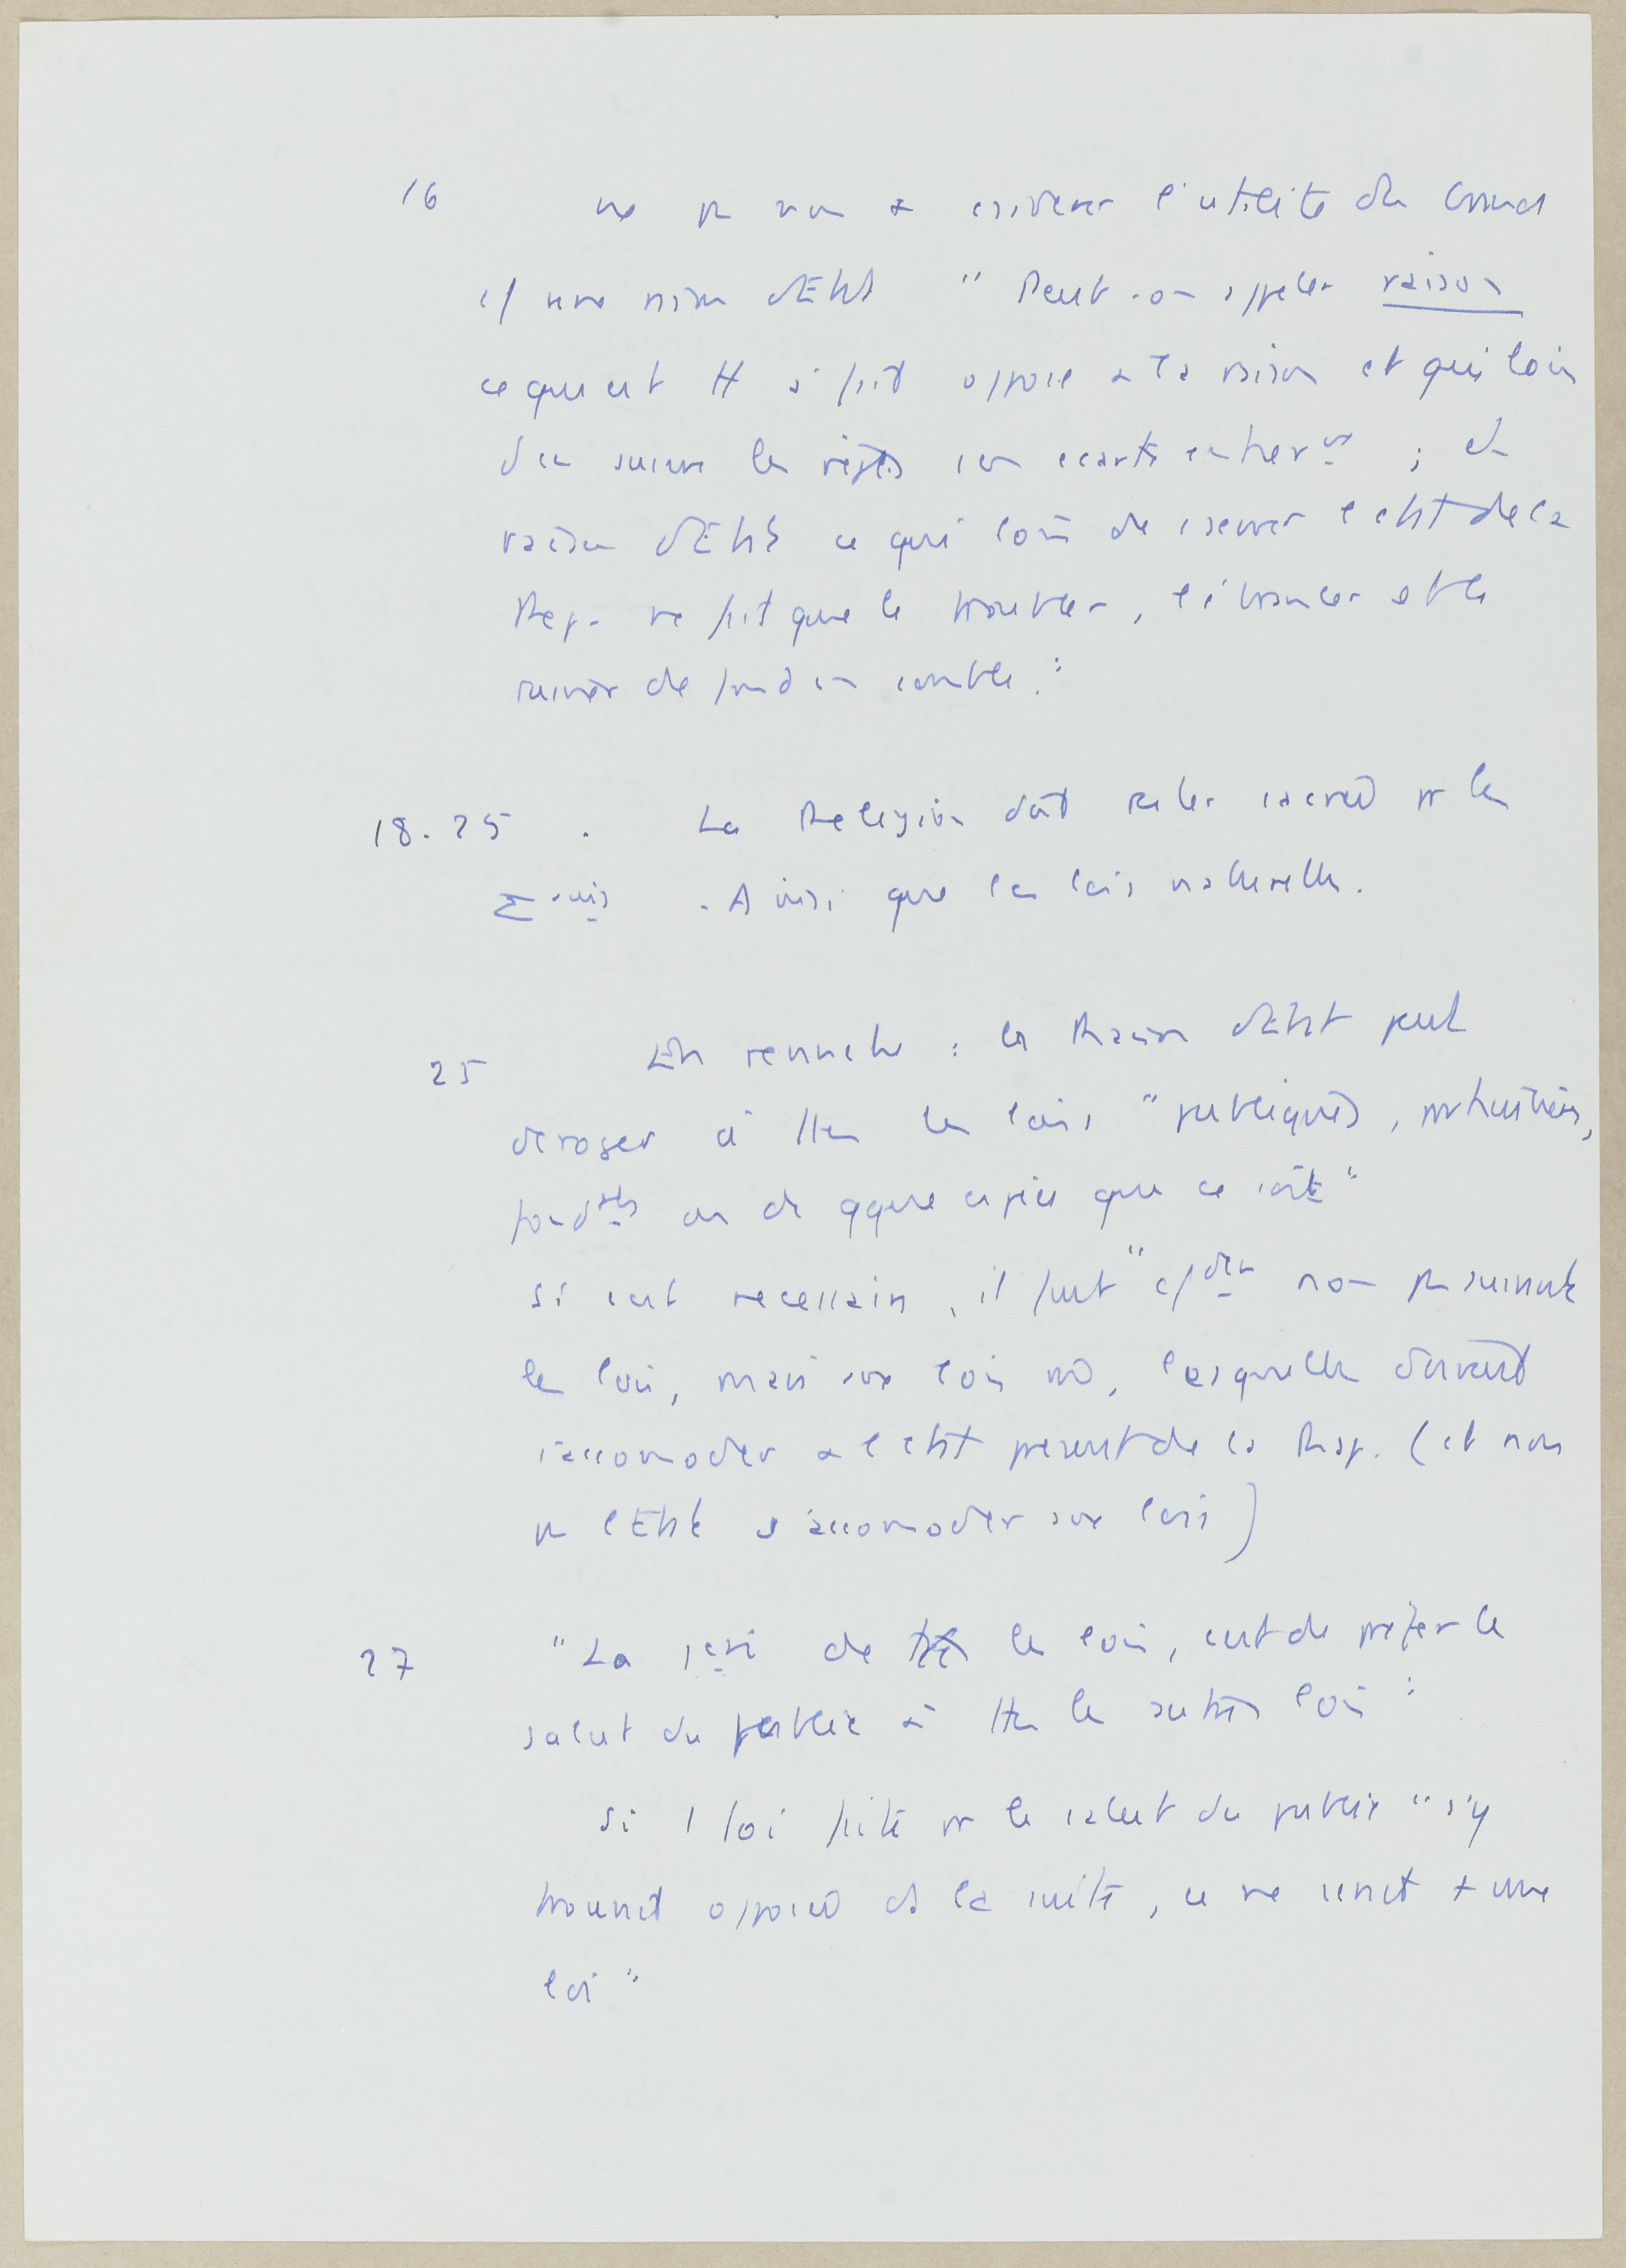 16 ne pas non + considerer l'utilité du
c/ une raison d'Etat " Peut-on appeler raison
ce qui est tt à fait opposé à la raison et qui loin
d'en suivre les règles s'en écarte ; et
raison d'Etat ce qui loin de conserver l'etat de la
Rep. ne fait que le troubler, l'ébranler et le
ruiner de fond en comble."
18.25 . La Religion doit rester sacrée pr les
. Ainsi que les lois naturelles.
25 En revanche : la Raison d'Etat peut
deroger à ttes les lois "publiques, particulières,
fond^ales ou de qque espèce que ce soit"
si c'est necessaire, il faut " c/der non pas suivant
les lois, mais aux lois m, lesquelles doivent
s'accomoder à l'etat present de la Rep. (et non
pas l'Etat s'accomoder aux lois)
27 "La 1ère de ttes les lois, c'est de préférer le
salut du public à ttes les autres lois"
si 1 loi faite pr le salut du public "s'y
trouvait opposée ds la suite, ce ne serait + une
loi"